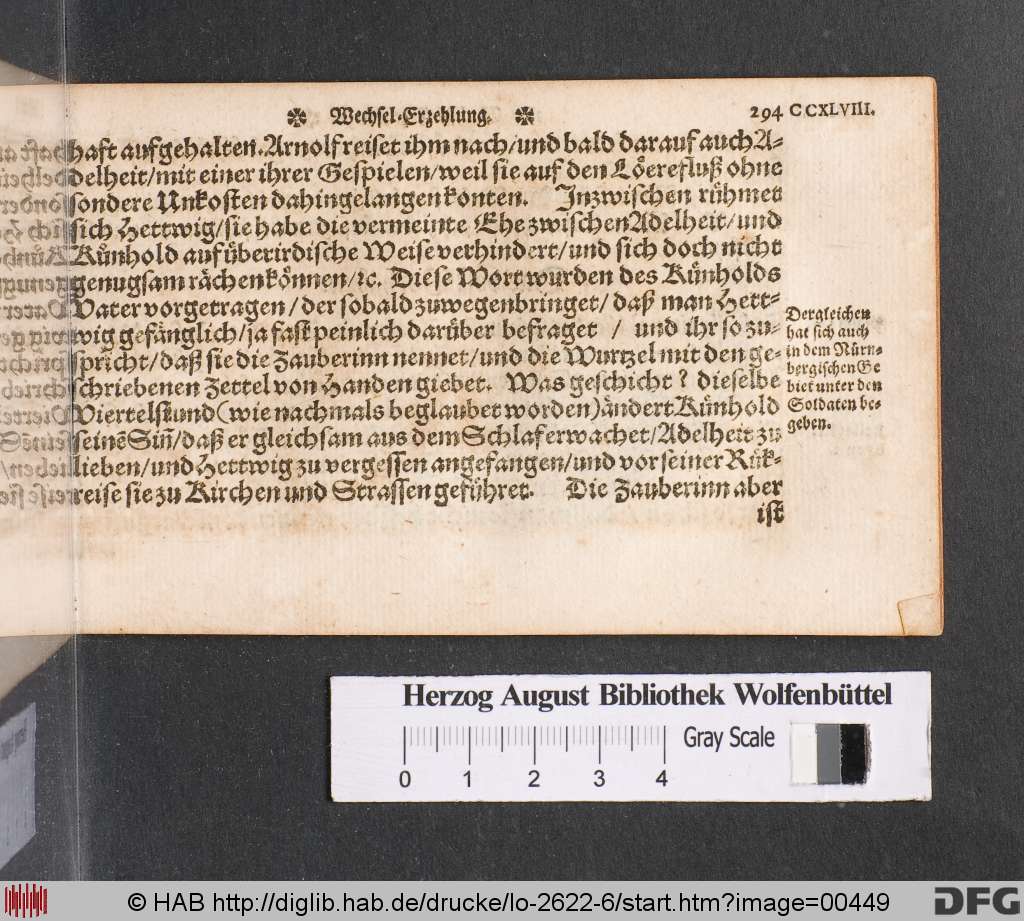 ✼ Wechsel-Erzehlung. ✼ 294 CCXLVIII.
haft aufgehalten. Arnolf reiset ihm nach/und bald darauf auch A-
delheit/mit einer ihrer Gespielen/weil sie auf den Löerefluß ohne
sondere Unkosten dahingelangen konten. Inzwischen rühmet
sich Hettwig/sie habe die vermeinte Ehe zwischen Adelheit/und
Kůnhold auf ůbertirdische Weise verhindert/und sich doch nicht
genugsam rächen kȯnnen/ꝛc. Diese Wort wurden des Kůnholds
Vater vorgetragen/der sobald zuwegenbringet/daß man Hett-
wig gefänglich/ja fast peinlich darüber befraget / und ihr so zu-
spricht/daß sie die Zauberinn nennet/und die Wurtzel mit den ge-
schriebenen Zettel von Handen giebet. Was geschicht? dieselbe
Viertelstund (wie nachmals beglaubet worden) ändert Kůnhold
seinē Siñ/daß er gleichsam aus dem Schlaf erwachet/Adelheit zu
lieben/und Hettwig zu vergessen angefangen/und vor seiner Růk-
reise sie zu Kirchen und Strassen geführet. Die Zauberinn aber
ist
Dergleichen
hat sich auch
in dem Nürn-
bergischen Ge
biet unter den
Soldaten be-
geben.
Herzog August Bibliothek Wolfenbüttel
0 1 2 3 4
Gray Scale
© HAB http://diglib.hab.de/drucke/lo-2622-6/start.htm?image=00449
DFG